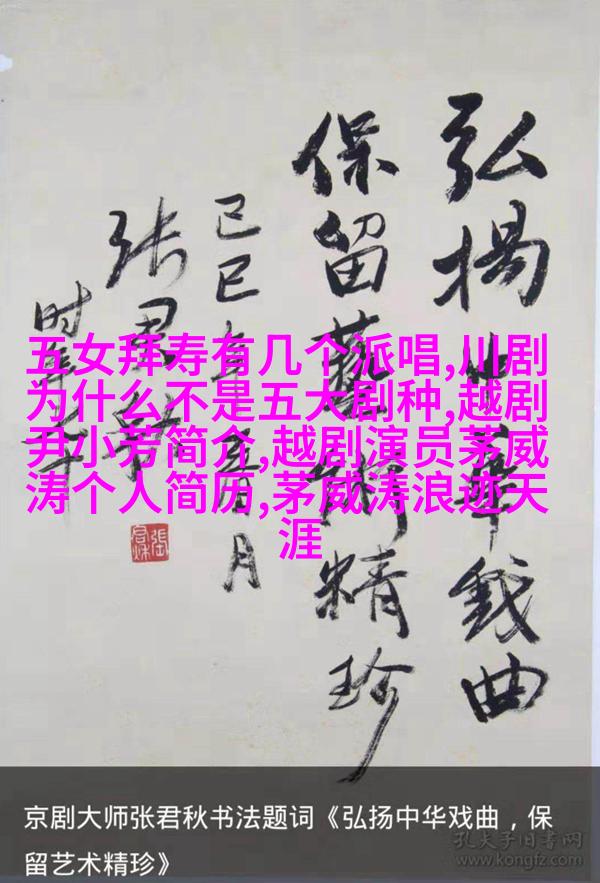 弘揚中華戏曲
保留藝術精珍
己巳年月
张君秋
时年
五女拜寿有几个派唱,川剧
为什么不是五大剧种,越剧
尹小芳简介,越剧演员茅威
涛个人简历,茅威涛浪迹天
涯
京剧大师张君秋书法题词《弘扬中华戏曲，保
留艺术精珍》
孔夫子旧书网
www.kongfz.com